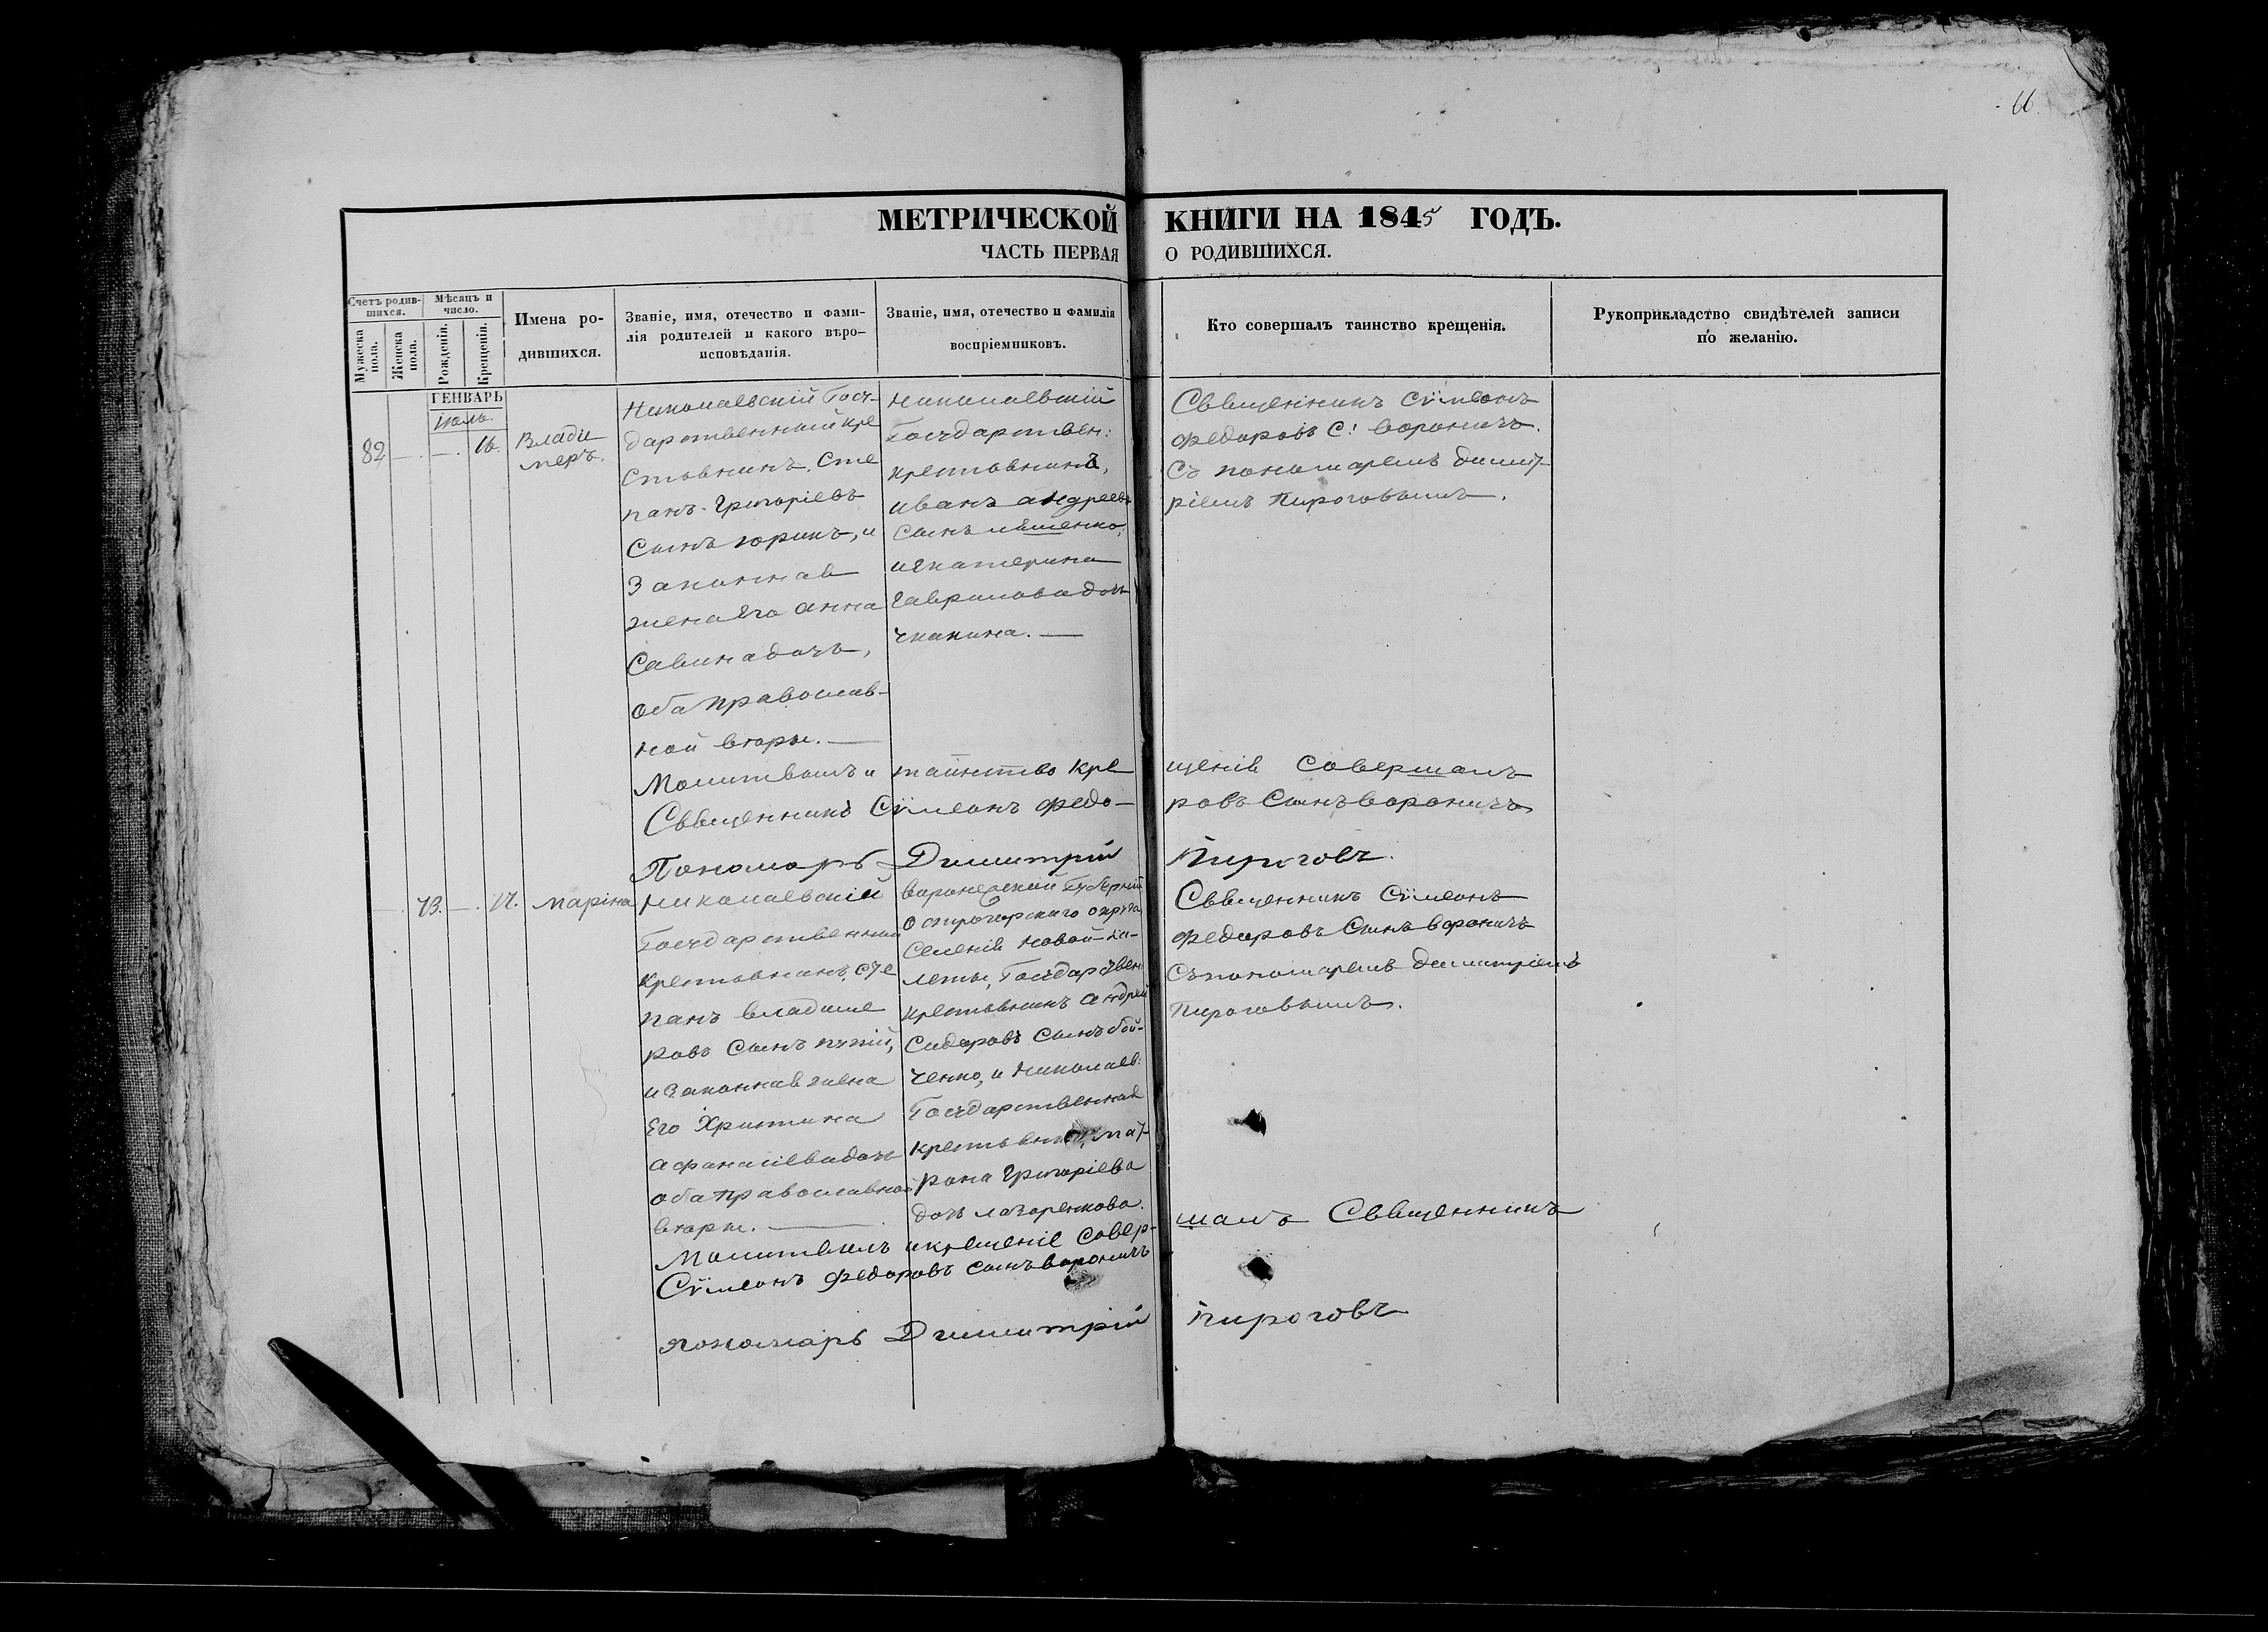 66.
МЕТРИЧЕСКОЙ КНИГИ НА 1845 ГОДЪ.
ЧАСТЬ ПЕРВАЯ О РОДИВШИХСЯ.
Счетъ родив-
шихся.
Мужеска
пола.
Женска
пола.
Мѣсяцъ и
число.
Рожденія.
Крещенія.
Имена ро-
дившихся.
Званіе, имя, отечество и фами-
лія родителей и какого вѣро-
исповѣданія.
Званіе, имя, отечество и фамилія
воспріемниковъ.
Кто совершалъ таинство крещенія.
Рукоприкладство свидѣтелей записи
по желанію.
ГЕНВАРЬ
82 — . — . 16.
Влади
меръ.
Николаевскій Госу-
дарственный кре
стьянинъ, Сте
панъ Григоріевъ
сынъ юринъ, и
Законная
жена его Анна
Савина дочь,
оба православ-
ной вѣры. —
Николаевскій
Государствен:
крестьянинъ,
иванъ андреевъ
сынъ
и екатерина
Гаврилова дочь
чканина. —
Священникъ Сѵмеонъ
Федоровъ С: вороничъ.
Съ пономаремъ димит-
ріемъ Пироговымъ.
Молитвалъ и таинство кре щенія совершалъ
Священникъ Сѵмеонъ Федо- ровъ сынъ вороничъ
Пономарь Димитрій Пироговъ.
— . 73. — . 17. Марина
Николаевскій
Государственный
крестьянинъ, сте
панъ владиме
ровъ сынъ
и законная жена
Его Христина
Афанасіева дочь
оба православной
вѣры. —
воронежской Губерніи
Острогорскаго округа
Селенія Новой-
Государствен
крестьянинъ андрей
Сидоровъ сынъ бой-
ченко, и николаев:
Государственная
мат-
рона Григоріева
дочь лазаренкова.
Священникъ Сѵмеонъ
Федоровъ сынъ вороничъ
съ пономаремъ димитріемъ
Пироговымъ.
Молитвалъ и крещеніе совер- шалъ Священникъ
Сѵмеонъ Федоровъ сынъ вороничъ
пономарь Димитрій Пироговъ